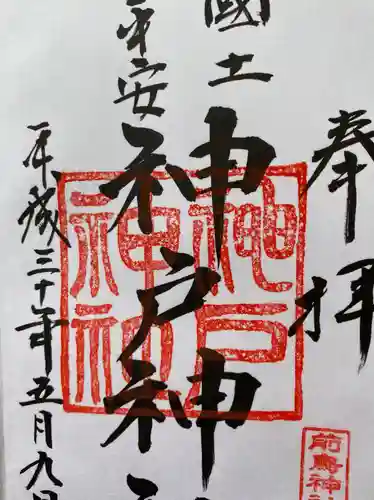 奉拝
國土
平安
神戸神
平成三十年五月九日
神戸
神社
前鳥神